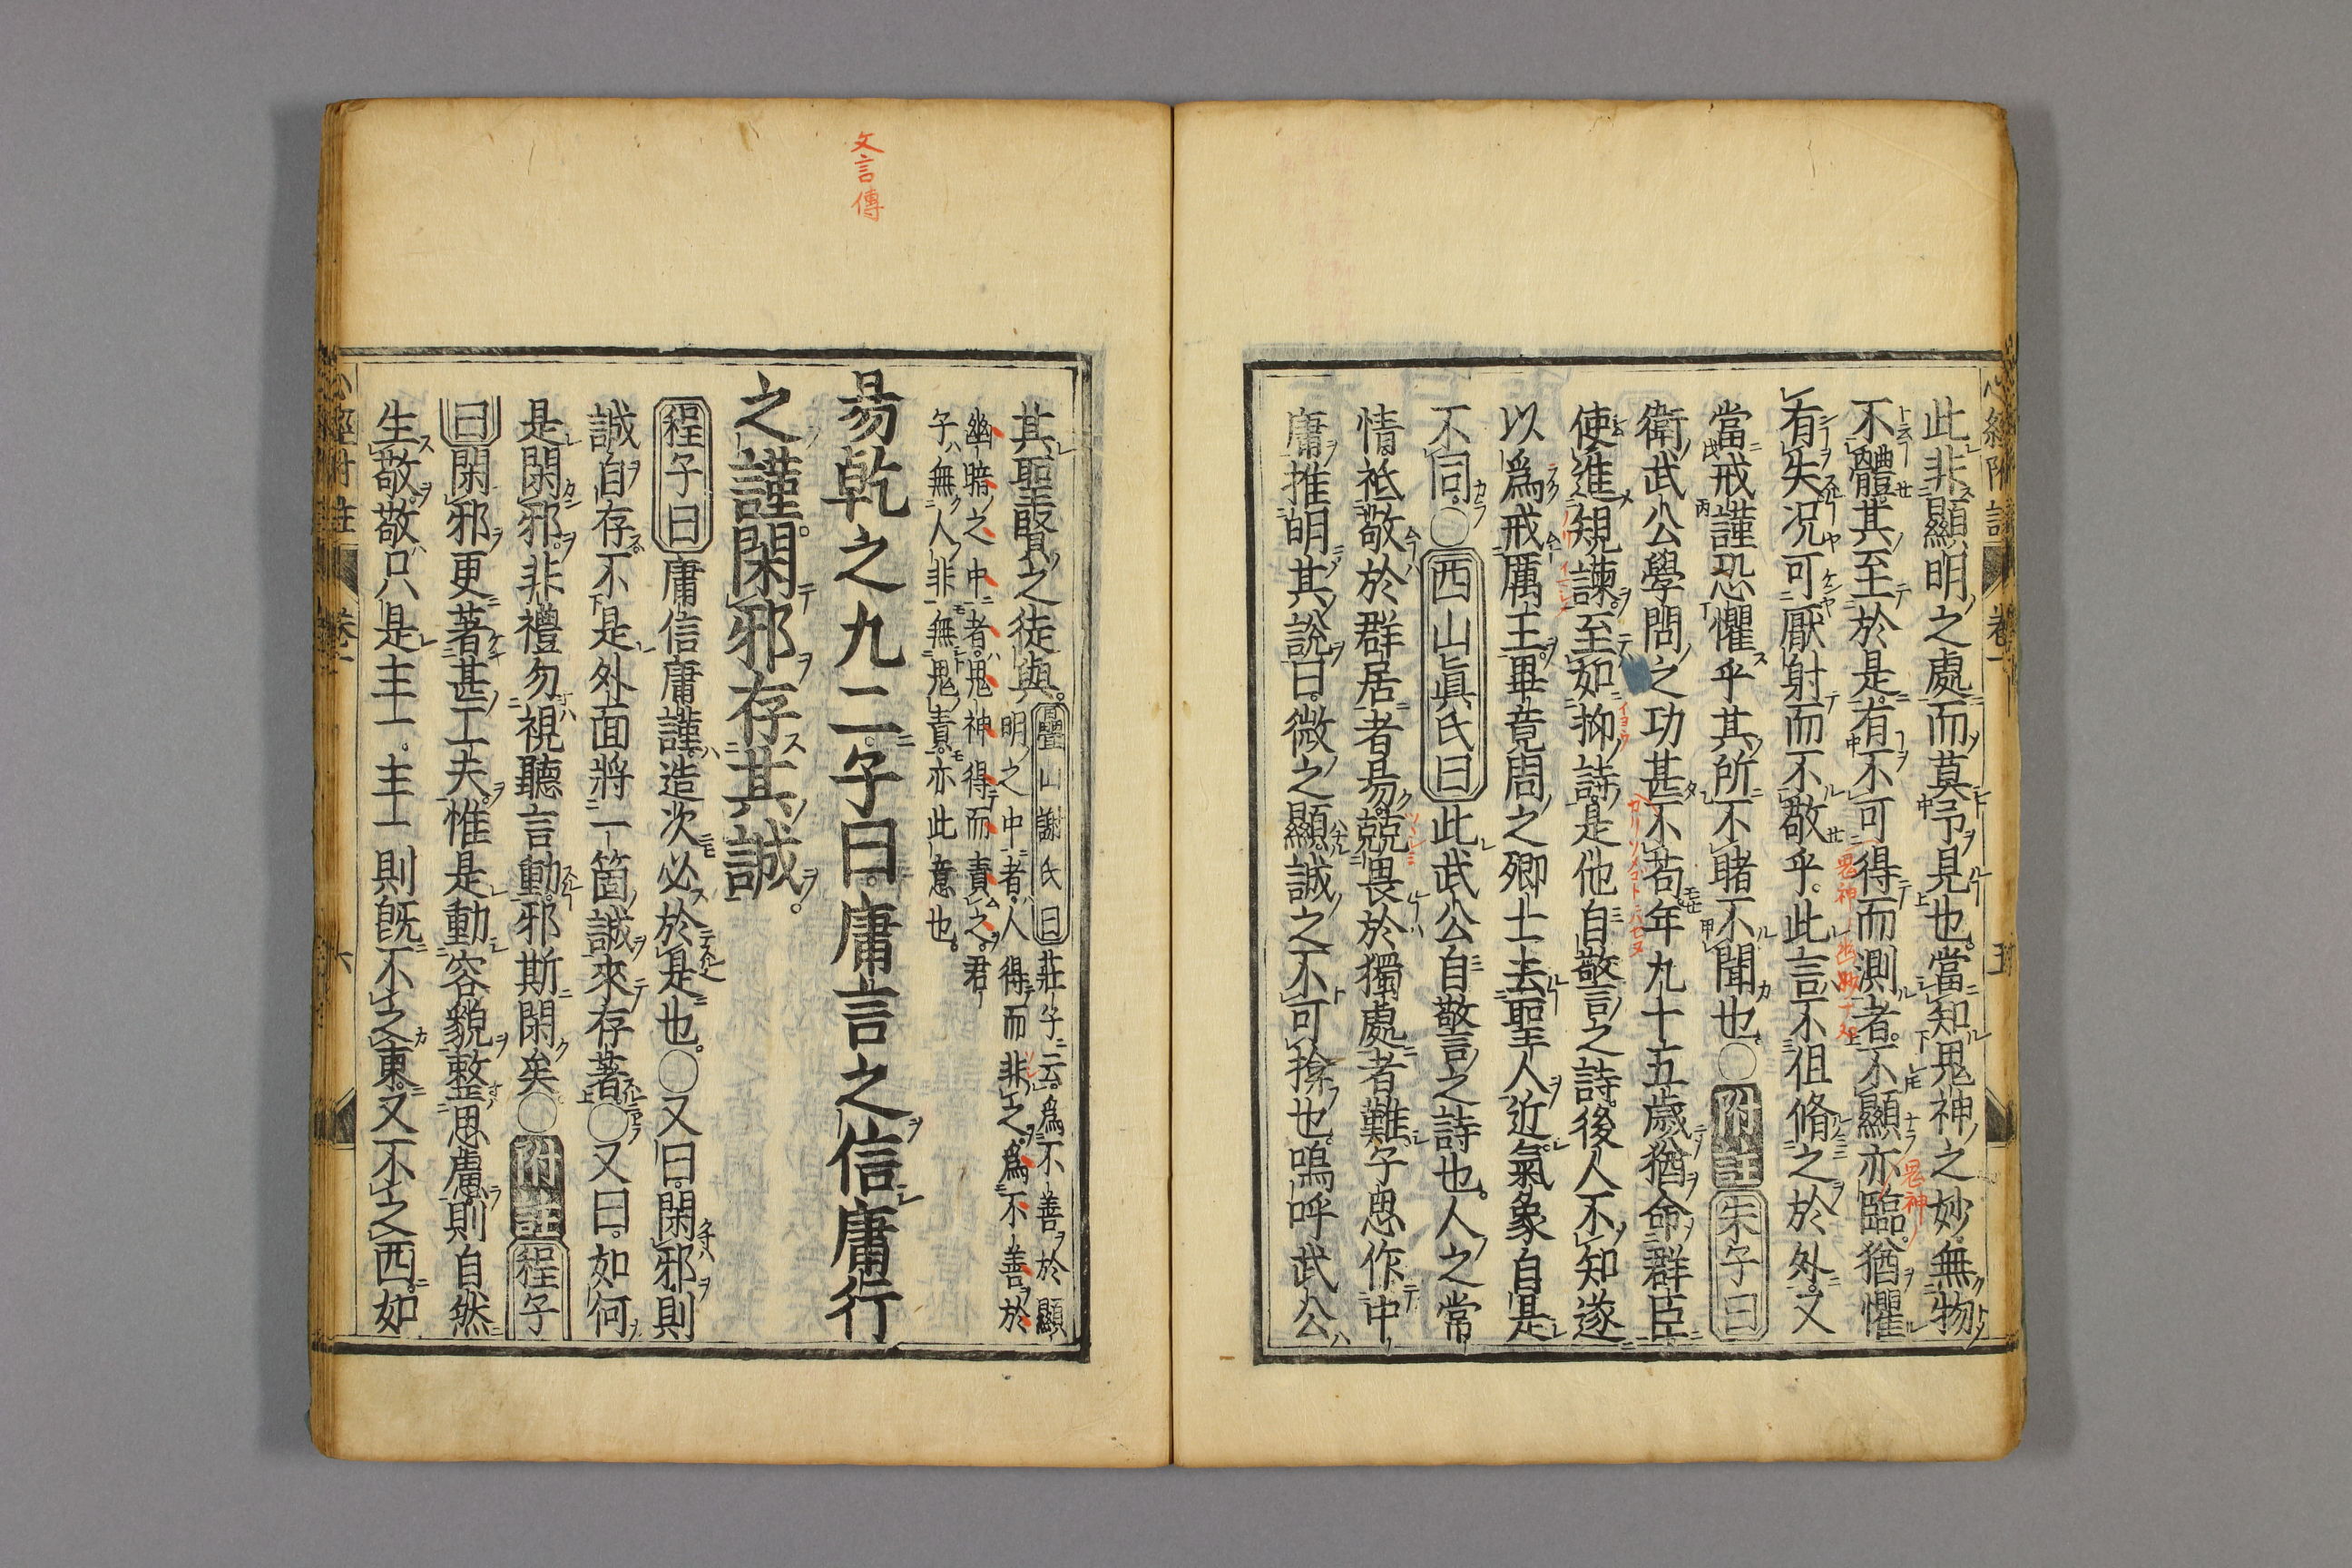 心經附註 卷一 五
此非顯明之處而莫予見也當知鬼神之妙無物
不體其至於是有不可得而測者不顯亦臨猶懼
有失況可厭射而不敬乎此言不但脩之於外又
當戒謹恐懼乎其所不睹不聞也○附註朱子曰
衛武公學問之功甚不苟年九十五歲猶命群臣
使進規諫至如抑詩是他自警之詩後人不知遂
以爲戒厲王畢竟周之卿士去聖人近氣象自是
不同○西山眞氏曰此武公自警之詩也人之常
情祗敬於群居者易兢畏於獨處者難子思作中
庸推明其說曰微之顯誠之不可揜也嗚呼武公
其聖賢之徒與
覺山謝氏曰莊子云爲不善於顯
明之中者人得而非之爲不善於
幽暗之中者鬼神得而責之君
子無人非無鬼責亦此意也
文言傳
易乾之九二子曰庸言之信庸行
之謹閑邪存其誠
程子曰庸信庸謹造次必於是也○又曰閑邪則
誠自存不是外面將一箇誠來存著○又曰如何
是閑邪非禮勿視聽言動邪斯閑矣○附註程子
曰閑邪更著甚工夫惟是動容貌整思慮則自然
生敬敬只是主一主一則旣不之東又不之西如
心經附註 卷一 六